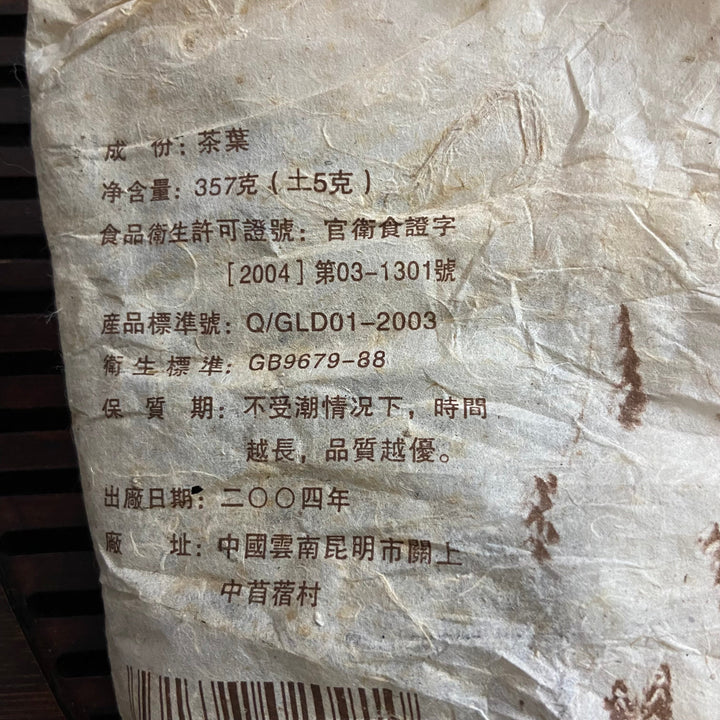 成 份: 茶葉
净含量: 357克(土5克)
食品衛生許可證號: 官衛食證字
[2004]第03-1301號
産品標準號: Q/GLD01-2003
衛生標準: GB9679-88
保 質 期: 不受潮情况下,時間
越長,品質越優。
出廠日期: 二〇〇四年
廠 址: 中國雲南昆明市關上
中苜蓿村